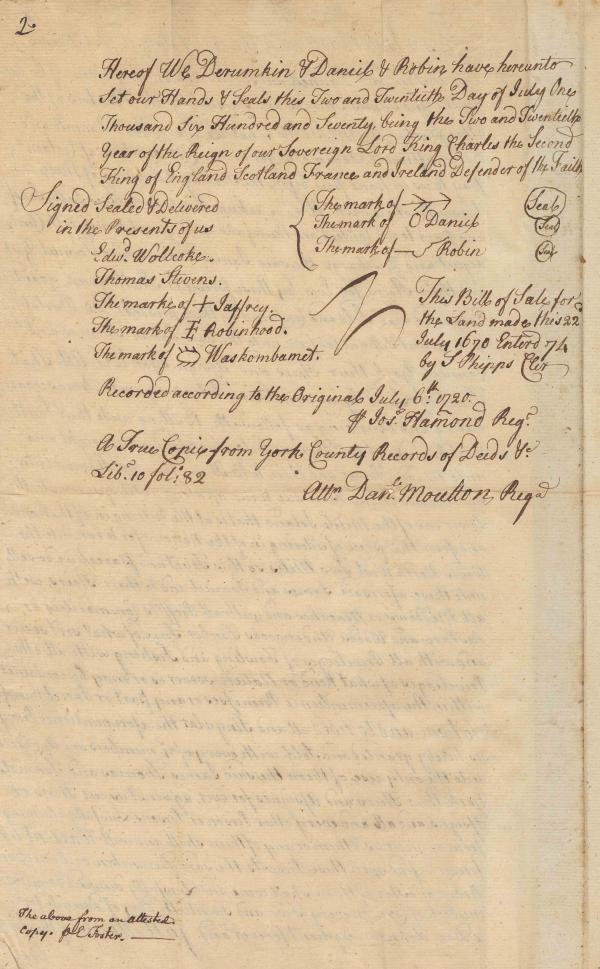 2
Hereof We Derumkin & Daniss & Robin have hereunto
Set our Hands & Seals this Two and Twentieth Day of July One
Thousand Six Hundred and Seventy, being the Two and Twentieth
Year of the Reign of our Sovereign Lord King Charles the Second
King of England Scotland France and Ireland Defender of the Faith
Signed Sealed & Delivered
in the Presents of us
The mark of Seal
The mark of O Daniss Seal
The mark of Robin Seal
Edwd. Wollcoke.
Thomas Stevens.
The marke of + Jaffrey.
The mark of E Robinhood.
The mark of Waskombamet.
This Bill of Sale for
the Land made this 22
July 1670 Enterd 74
by S Phipps Cler
Recorded according to the Original July 6th. 1720.
Jos. Hamond Regr.
A True Copie from York County Records of Deeds &c
Libo. 10 fol: 82
Attr Danl. Moulton Regd
The above from an attested
Copy. E Foster.